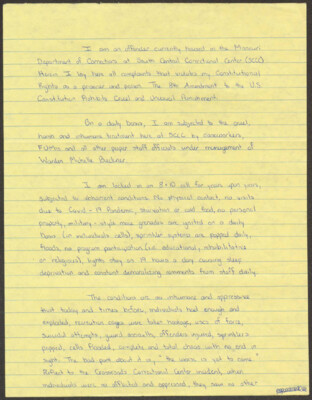 I am an offender currently housed in the Missouri
Department of Corrections at South Central Correctional Center (SCCC)
Herein I lay here of complaints that violates my Constitutional
Rights as a prisoner and person. The 8th Amendment to the U.S.
Constitution Prohibits Cruel and Unusual Punishment.
On a daily basis, I am subjected to the cruel,
harsh and inhumane treatment here at SCCC by caseworkers,
FUM's and all other paper staff officials under management of
Warden Michele Buckner.
I am locked in an 8x10 cell for years upon years,
subjected to deterrent conditions. No physical contact, no visits
due to Covid-19 Pandemic, starvation of real food, no personal
property, military-style mass parades are ignited on a daily
basis (in individuals cells), sprinkler systems are popped daily,
floods, no program participation (i.e. educational, rehabilitative
or religious), lights stay on 19 hours a day causing sleep
deprivation and constant demoralizing comments from staff daily.
The conditions are so inhumane and oppressive
that today and times before, individuals had enough and
exploded, recreation cages were taken hostage, uses of force,
suicidal attempts, guard assaults, offenders injured, sprinklers
popped, cells flooded, complete and total chaos with no end in
sight. The sad part about it is, "the worse is yet to come"
Reflect to the Crossroads Correctional Center incident, when
individuals were so afflicted and oppressed, they saw no other